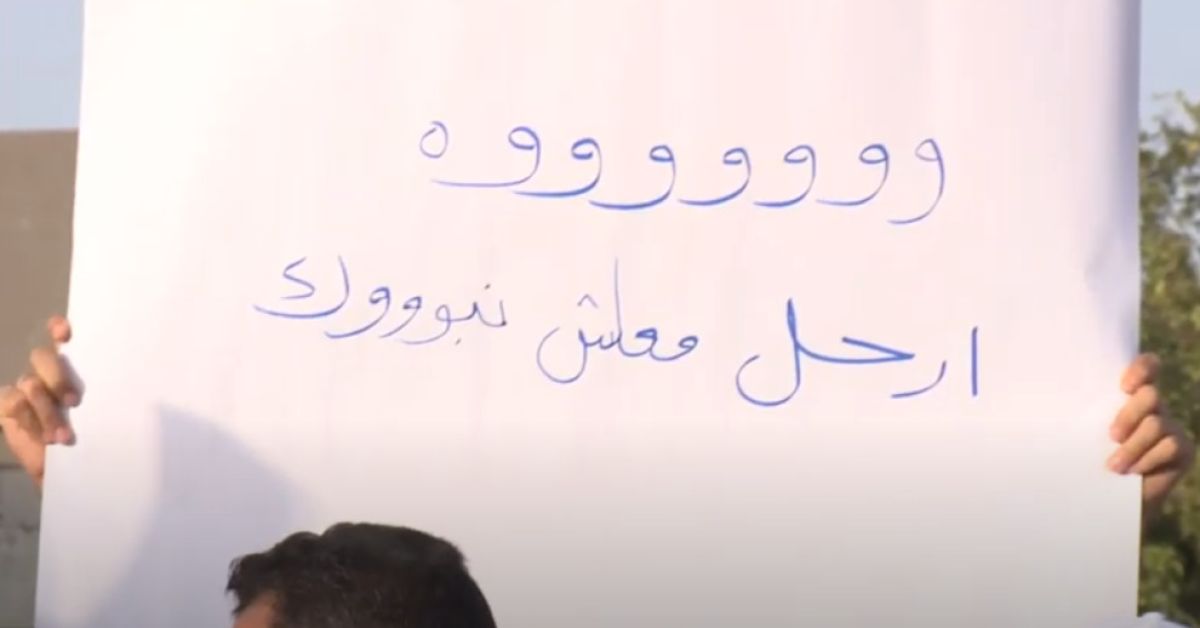 وووووووه
ارحل معاش نبوووك